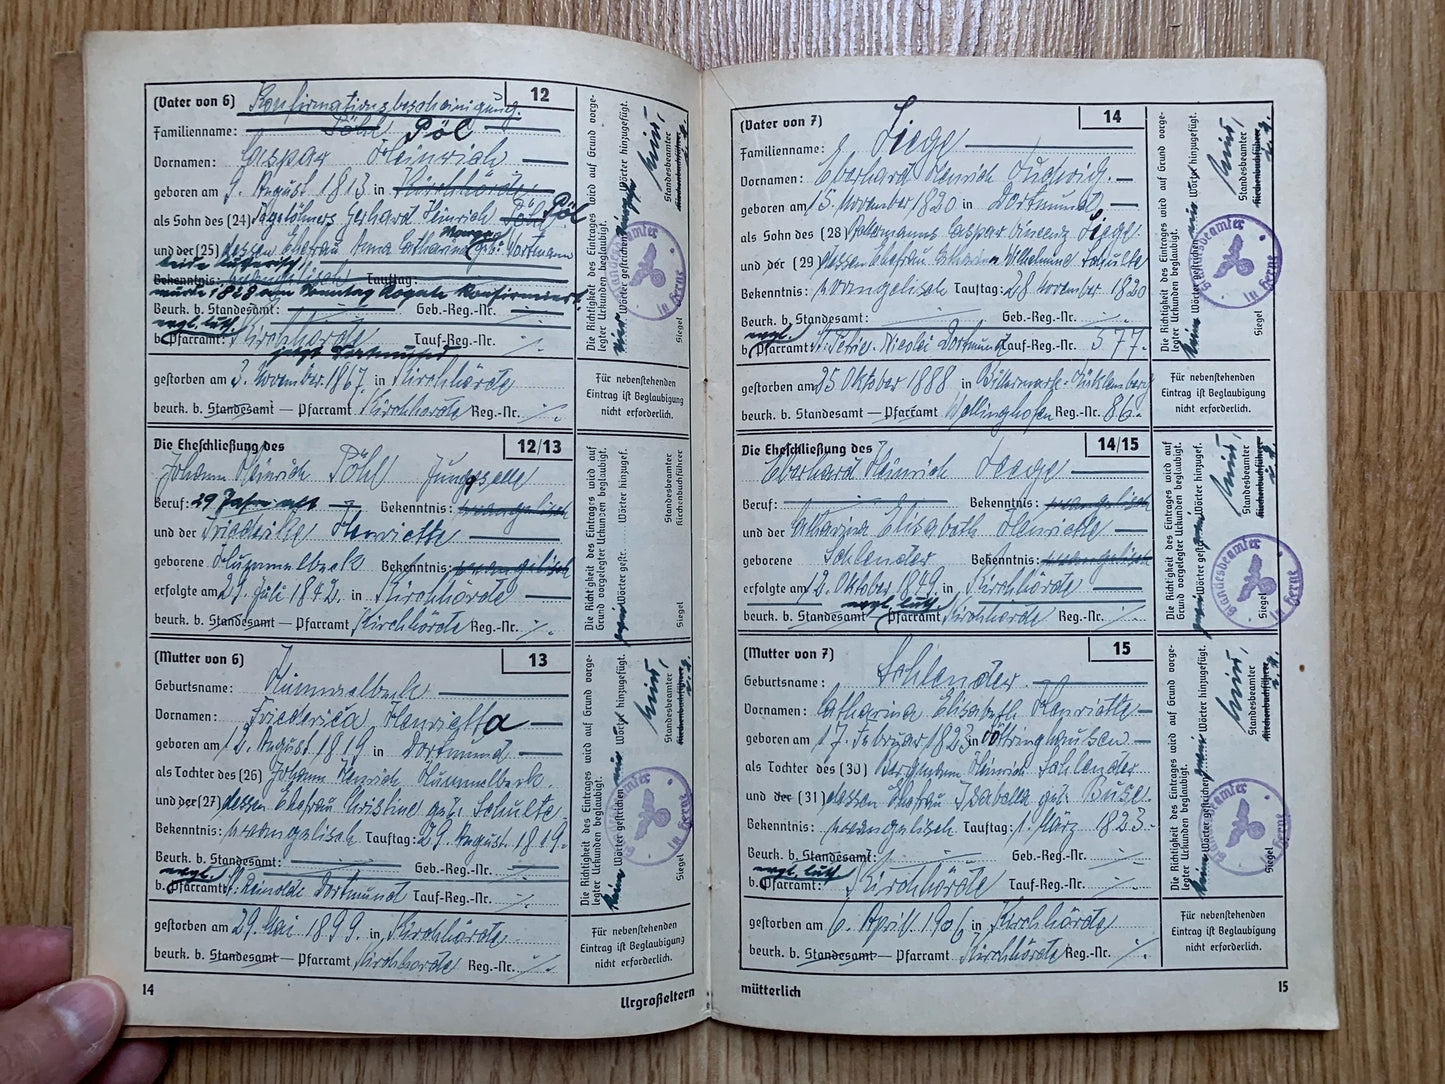 (Vater von 6) Konfirmationsbescheinigung. 12
Familienname: Pöhl Pöl
Vornamen: Caspar Heinrich
geboren am 9. August 1813 in Kirchhörde
als Sohn des (24) Tagelöhners Gerhard Heinrich Pöhl Pöl
und der (25) dessen Ehefrau Anna Catharina geb. Dortmann
beide lutherisch
Bekenntnis: Tauftag:
wurde 1828 am Sonntag Rogate konfirmiert
Beurk. b. Standesamt: Geb.-Reg.-Nr.
evgl. luth.
b. Pfarramt: Kirchhörde Tauf-Reg.-Nr. ./.
jetzt Dortmund
gestorben am 3. November 1867. in Kirchhörde
beurk. b. Standesamt — Pfarramt Kirchhörde Reg.-Nr. ./.
Die Richtigkeit des Eintrages wird auf Grund vorgelegter Urkunden beglaubigt.
Wörter gestrichen Wörter hinzugefügt.
Standesbeamter
Kirchenbuchführer
Siegel
Standesbeamter in Herne
Für nebenstehenden
Eintrag ist Beglaubigung
nicht erforderlich.
Die Eheschließung des 12/13
Johann Heinrich Pöhl Junggselle
Beruf: 29 Jahre alt Bekenntnis: evangelisch
und der Friederike Henriette
geborene Hummelbeck Bekenntnis: evangelisch
erfolgte am 29. Juli 1842. in Kirchhörde
beurk. b. Standesamt — Pfarramt Kirchhörde Reg.-Nr. ./.
Die Richtigkeit des Eintrages wird auf
Grund vorgelegter Urkunden beglaubigt.
Wörter gestr. Wörter hinzugef.
Standesbeamter
Kirchenbuchführer
Siegel
(Mutter von 6) 13
Geburtsname: Hummelbeck
Vornamen: Friederica Henrietta
geboren am 12. August 1819 in Dortmund
als Tochter des (26) Johann Heinrich Hummelbeck.
und der (27) dessen Ehefrau Cristine geb. Schulte
Bekenntnis: evangelisch Tauftag: 29. August. 1819.
Beurk. b. Standesamt: Geb.-Reg.-Nr. ./.
evgl.
b. Pfarramt: St. Reinoldi Dortmund Tauf-Reg.-Nr. ./.
gestorben am 29. Mai 1899. in Kirchhörde
beurk. b. Standesamt — Pfarramt Kirchhörde Reg.-Nr. ./.
Die Richtigkeit des Eintrages wird auf Grund vorgelegter Urkunden beglaubigt.
kein Wörter gestrichen Wörter hinzugefügt.
Standesbeamter
Kirchenbuchführer
Siegel
Standesbeamter in Herne
Für nebenstehenden
Eintrag ist Beglaubigung
nicht erforderlich.
14 Urgroßeltern
(Vater von 7) 14
Familienname: Siege
Vornamen: Eberhard Heinrich Ludwig.
geboren am 15. November 1820 in Dortmund
als Sohn des (28) Caspar Siege
und der (29) dessen Ehefrau Schulte
Bekenntnis: evangelisch Tauftag: 28. November 1820
Beurk. b. Standesamt: Geb.-Reg.-Nr. ./.
evgl.
b. Pfarramt: St. Petrie. Nicolei Dortmund Tauf-Reg.-Nr. 377.
gestorben am 25 Oktober 1888 in
beurk. b. Standesamt — Pfarramt Wellinghofen Reg.-Nr. 86.
Die Richtigkeit des Eintrages wird auf Grund vorgelegter Urkunden beglaubigt.
kein Wörter gestrichen Wörter hinzugefügt.
Standesbeamter
Kirchenbuchführer
Siegel
Standesbeamter in Herne
Für nebenstehenden
Eintrag ist Beglaubigung
nicht erforderlich.
Die Eheschließung des 14/15
Eberhard Heinrich Siege
Beruf: Bekenntnis: evangelisch
und der Catharina Elisabeth Henriette
geborene Schlender Bekenntnis: evangelisch
erfolgte am 12. Oktober 1849. in Kirchhörde
evgl. luth.
beurk. b. Standesamt — Pfarramt Kirchhörde Reg.-Nr. ./.
Die Richtigkeit des Eintrages wird auf
Grund vorgelegter Urkunden beglaubigt.
Wörter gestr. Wörter hinzugef.
Standesbeamter
Kirchenbuchführer
Siegel
Standesbeamter in Herne
(Mutter von 7) 15
Geburtsname: Schlender
Vornamen: Catharina Elisabeth Henriette
geboren am 17. Februar 1823 in
als Tochter des (30) Bergmann Heinrich Schlender
und der (31) dessen Ehefrau Isabella geb. Buse.
Bekenntnis: evangelisch Tauftag: 1. März 1823.
Beurk. b. Standesamt: Geb.-Reg.-Nr. ./.
evgl. luth.
b. Pfarramt: Kirchhörde Tauf-Reg.-Nr. ./.
gestorben am 6. April. 1906 in Kirchhörde
beurk. b. Standesamt — Pfarramt Kirchhörde Reg.-Nr. ./.
Die Richtigkeit des Eintrages wird auf Grund vorgelegter Urkunden beglaubigt.
kein Wörter gestrichen Wörter hinzugefügt.
Standesbeamter
Kirchenbuchführer
Siegel
Standesbeamter in Herne
Für nebenstehenden
Eintrag ist Beglaubigung
nicht erforderlich.
mütterlich 15